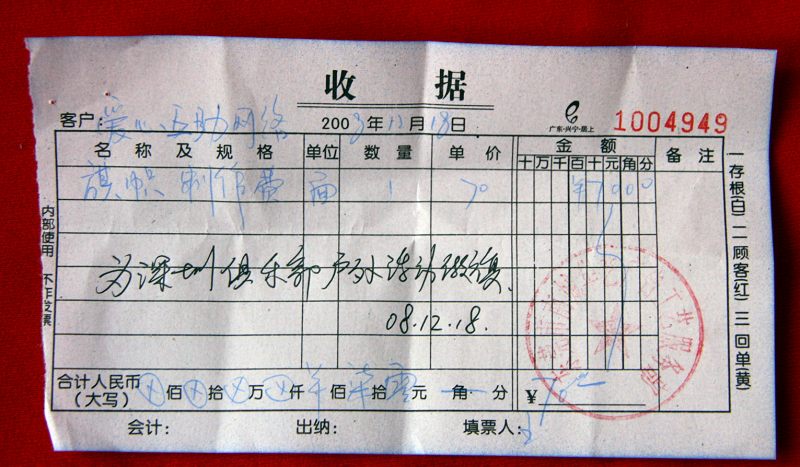 收 据
客户: 爱心互助网络 2008年11月18日 广东·兴宁·晨上 1004949
名称及规格 单位 数量 单价 金额 备注
十万千百十元角分
旗帜制作费 面 1 70 ¥7000
为深圳俱乐部户外活动做旗.
08.12.18.
合计人民币(大写) 佰 拾 万 仟 佰 柒拾零元 角 分 ¥70
会计: 出纳: 填票人:
内部使用 不作发票
一存根(白)二顾客(红)三回单(黄)